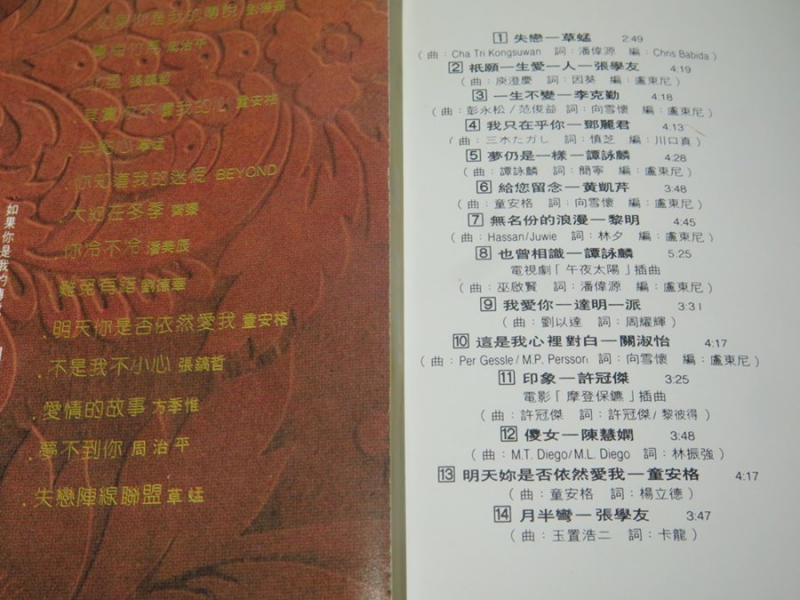 你是我的傳說 劉德華
周治平
張鎬哲
我的心 童安格
草蜢
你知道我的迷惘 BEYOND
大約在冬季 齊秦
你冷不冷 潘美辰
難免有錯 劉德華
明天你是否依然愛我 童安格
不是我不小心 張鎬哲
愛情的故事 方季惟
夢不到你 周治平
失戀陣線聯盟 草蜢
如果你是我的傳
1 失戀—草蜢 2:49
(曲:Cha Tri Kongsuwan 詞:潘偉源 編:Chris Babida)
2 祇願一生愛一人—張學友 4:19
(曲:庾澄慶 詞:因葵 編:盧東尼)
3 一生不變—李克勤 4:18
(曲:彭永松/范俊益 詞:向雪懷 編:盧東尼)
4 我只在乎你—鄧麗君 4:13
(曲:三木たガし 詞:慎芝 編:川口真)
5 夢仍是一樣—譚詠麟 4:28
(曲:譚詠麟 詞:簡寧 編:盧東尼)
6 給您留念—黃凱芹 3:48
(曲:童安格 詞:向雪懷 編:盧東尼)
7 無名份的浪漫—黎明 4:45
(曲:Hassan/Juwie 詞:林夕 編:盧東尼)
8 也曾相識—譚詠麟 5:25
電視劇「午夜太陽」插曲
(曲:巫啟賢 詞:潘偉源 編:盧東尼)
9 我愛你—達明一派 3:31
(曲:劉以達 詞:周耀輝)
10 這是我心裡對白—關淑怡 4:17
(曲:Per Gessle/M.P. Persson 詞:向雪懷 編:盧東尼)
11 印象—許冠傑 3:25
電影「摩登保鑣」插曲
(曲:許冠傑 詞:許冠傑/黎彼得)
12 傻女—陳慧嫻 3:48
(曲:M.T. Diego/M.L. Diego 詞:林振強)
13 明天妳是否依然愛我—童安格 4:17
(曲:童安格 詞:楊立德)
14 月半彎—張學友 3:47
(曲:玉置浩二 詞:卡龍)